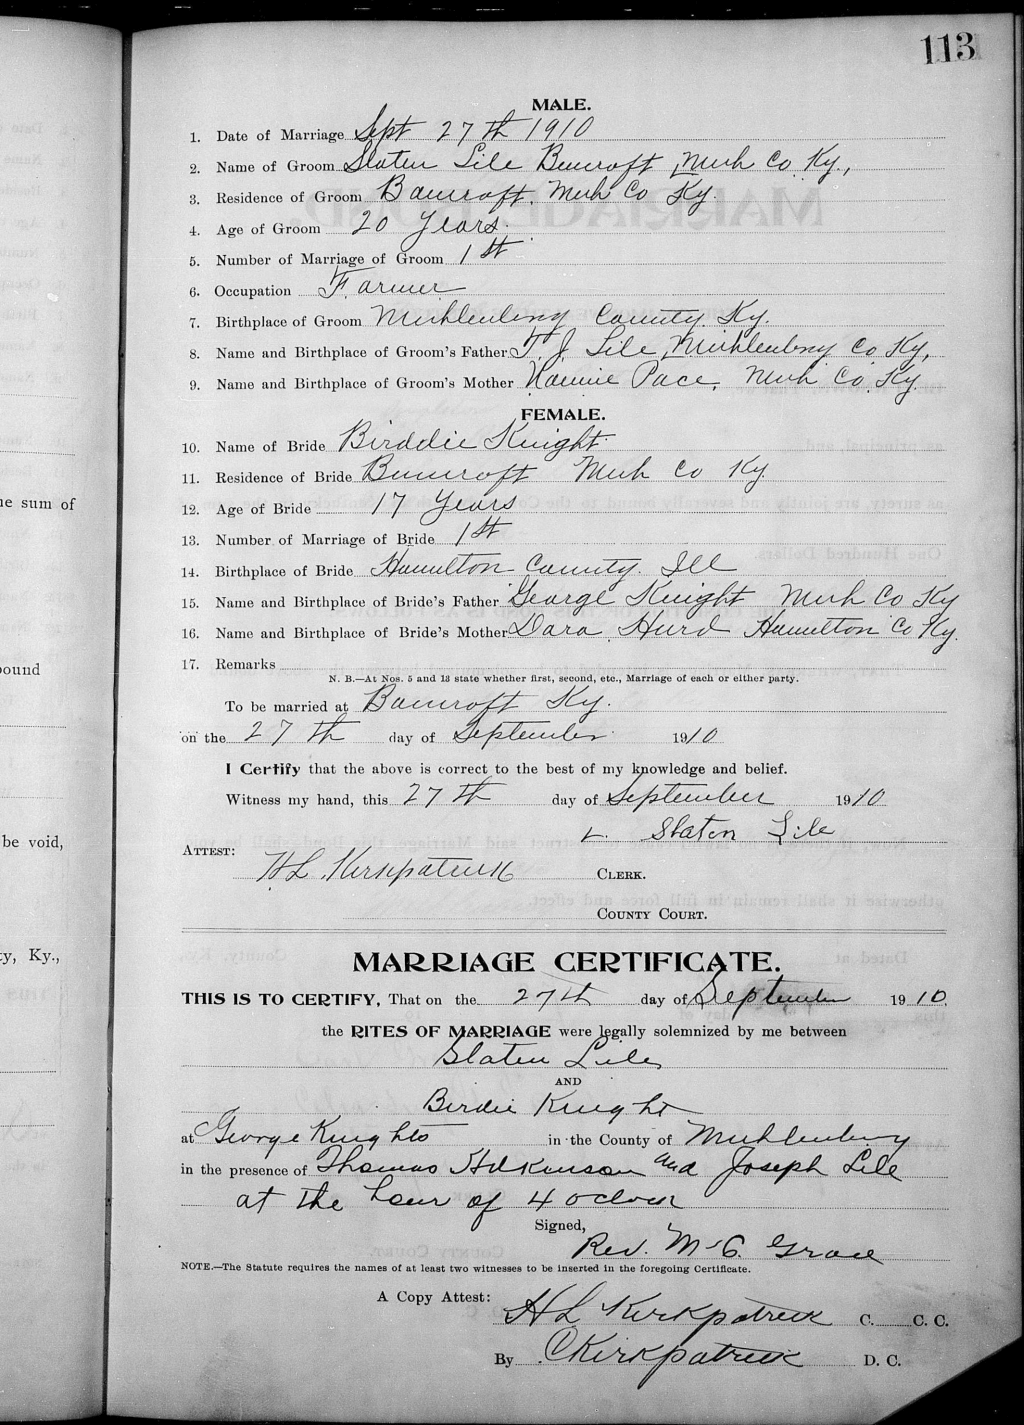 113
MALE.
1. Date of Marriage Sept 27th 1910
2. Name of Groom Slaten Lile Bancroft, Muh Co. Ky.,
3. Residence of Groom Bancroft, Muh Co Ky.
4. Age of Groom 20 Years.
5. Number of Marriage of Groom 1st
6. Occupation Farmer
7. Birthplace of Groom Muhlenberg County. Ky.
8. Name and Birthplace of Groom's Father T. J. Lile, Muhlenberg Co. Ky,
9. Name and Birthplace of Groom's Mother Nannie Pace, Muh Co. Ky.
FEMALE.
10. Name of Bride Birddie Knight.
11. Residence of Bride Bancroft Muh Co Ky.
12. Age of Bride 17 Years
13. Number of Marriage of Bride 1st
14. Birthplace of Bride Hamilton County. Ill
15. Name and Birthplace of Bride's Father George Knight Muh Co Ky
16. Name and Birthplace of Bride's Mother Dora Hurd Hamilton Co Ky.
17. Remarks
N. B.—At Nos. 5 and 13 state whether first, second, etc., Marriage of each or either party.
To be married at Bancroft Ky.
on the 27th day of September 1910
I Certify that the above is correct to the best of my knowledge and belief.
Witness my hand, this 27th day of September 1910
L. Slaton Lile
ATTEST:
H L. Kirkpatrick CLERK.
COUNTY COURT.
MARRIAGE CERTIFICATE.
THIS IS TO CERTIFY, That on the 27th day of September 1910.
the RITES OF MARRIAGE were legally solemnized by me between
Slaten Lile
AND
Birdie Knight
at George Knights in the County of Muhlenberg
in the presence of Thomas and Joseph Lile
at the hour of 4 oclock
Signed,
Rev. M. C.
NOTE.—The Statute requires the names of at least two witnesses to be inserted in the foregoing Certificate.
A Copy Attest:
H L Kirkpatrick C. C. C.
By C Kirkpatrick D. C.
he sum of
bound
be void,
ty, Ky.,